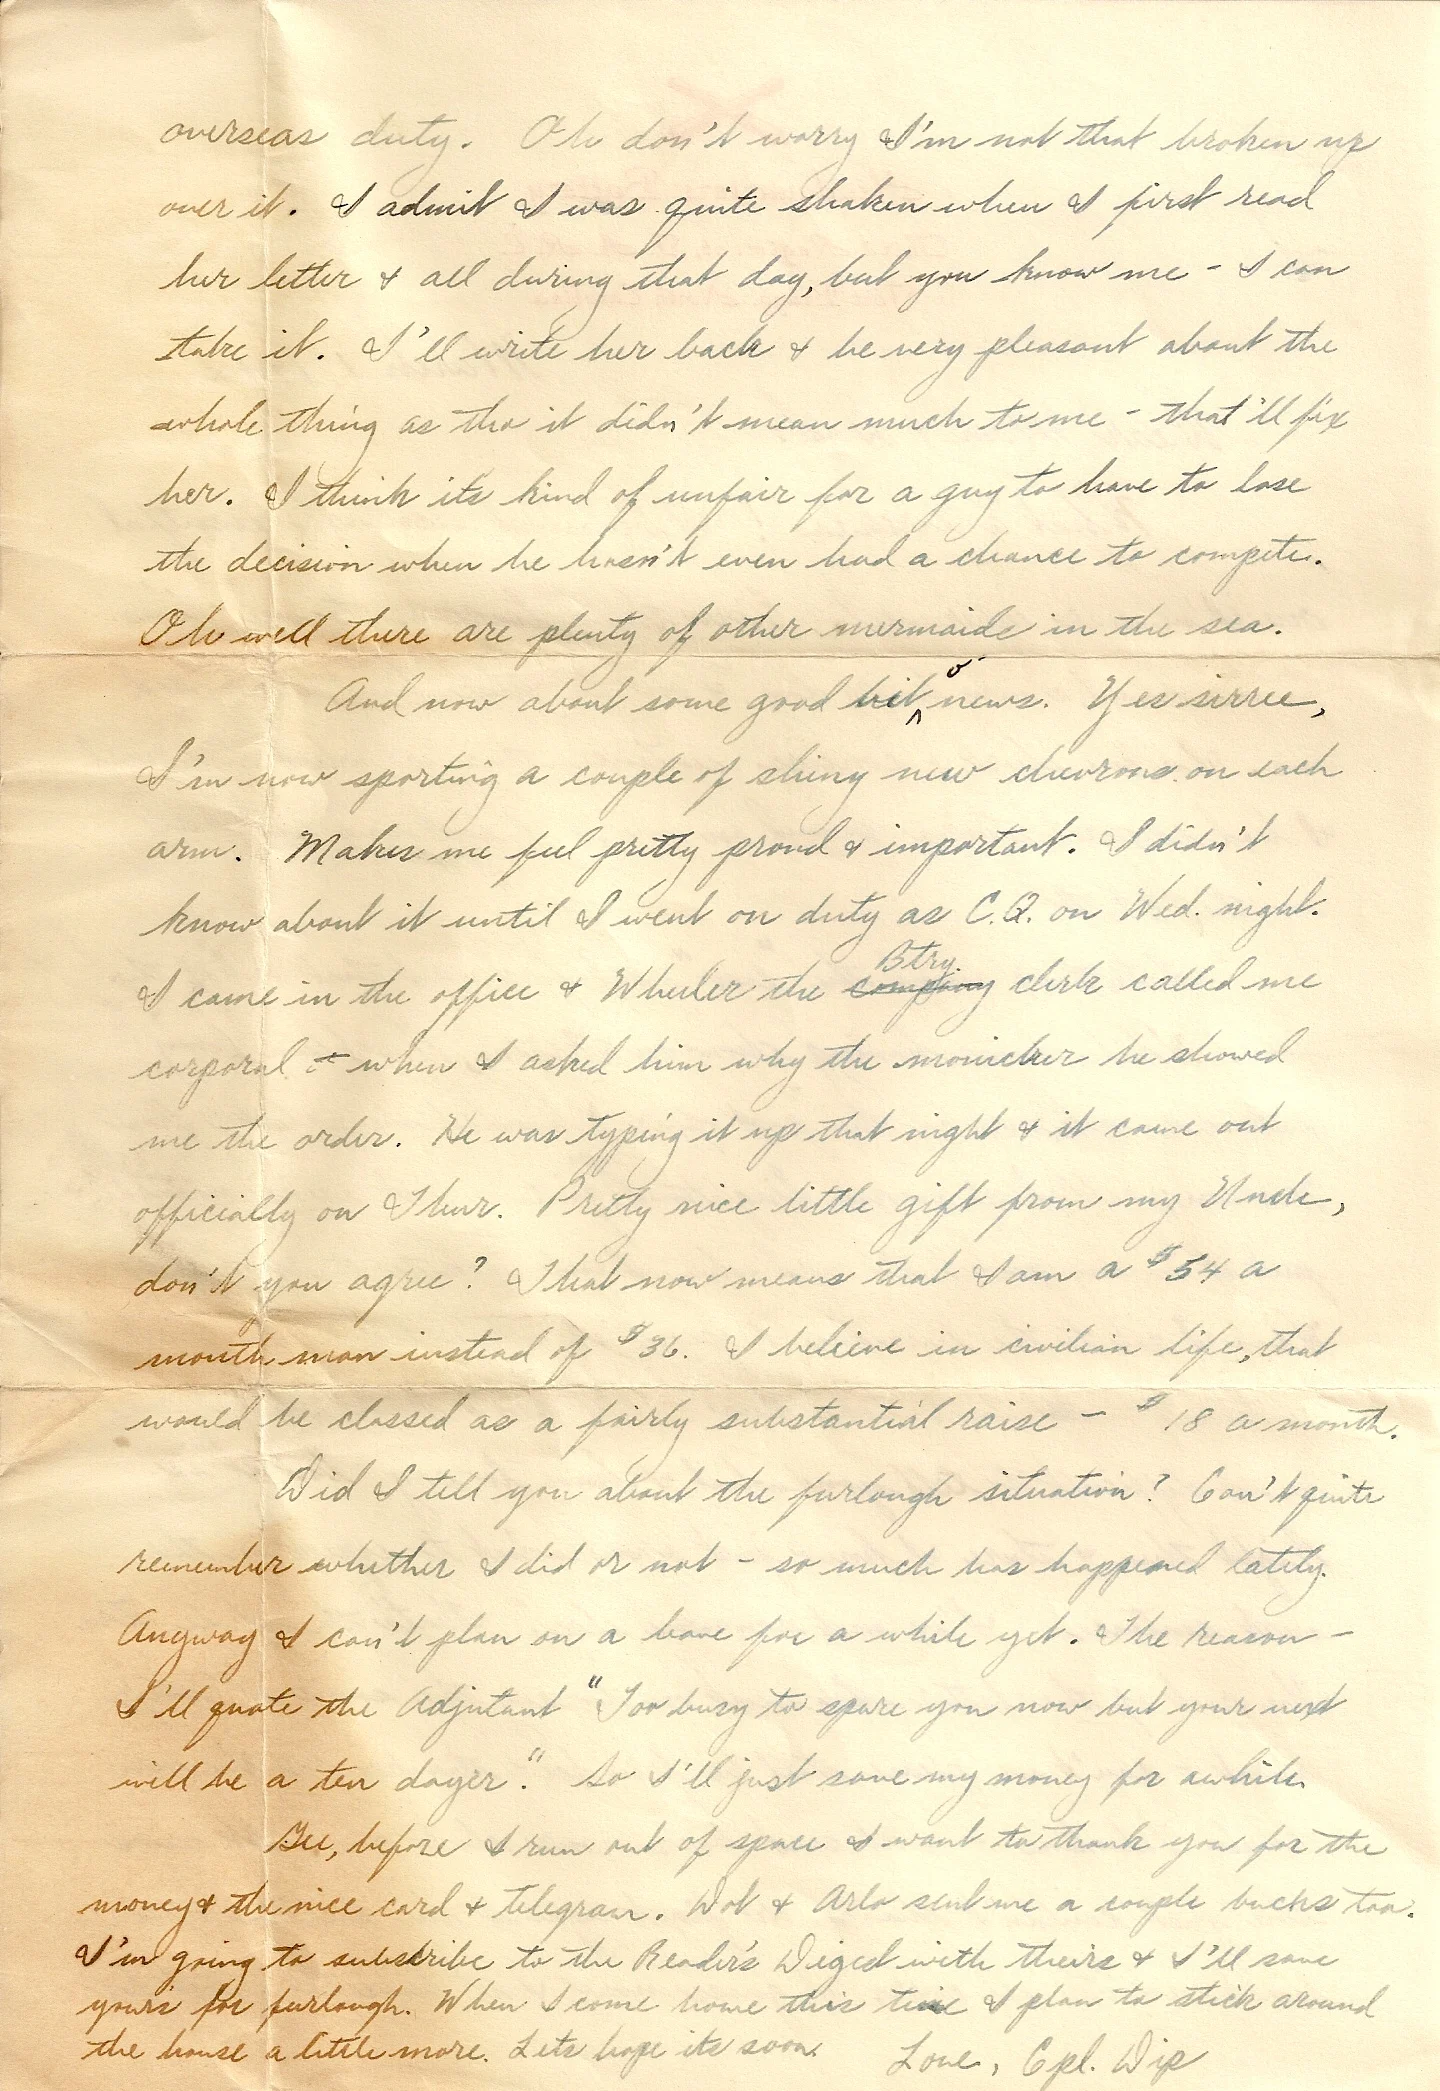 overseas duty. Oh don't worry I'm not that broken up
over it. I admit I was quite shaken when I first read
her letter & all during that day, but you know me - I can
take it. I'll write her back & be very pleasant about the
whole thing as tho it didn't mean much to me - that'll fix
her. I think its kind of unfair for a guy to have to lose
the decision when he hasn't even had a chance to compete.
Oh well there are plenty of other mermaids in the sea.
And now about some good bit o' news. Yes sirree,
I'm now sporting a couple of shiny new chevrons on each
arm. Makes me feel pretty proud & important. I didn't
know about it until I went on duty as C.Q. on Wed. night.
I came in the office & Wheeler the company Btry. clerk called me
corporal & when I asked him why the monicker he showed
me the order. He was typing it up that night & it came out
officially on Thur. Pretty nice little gift from my Uncle,
don't you agree? That now means that I am a $54 a
month man instead of $36. I believe in civilian life, that
would be classed as a fairly substantial raise - $18 a month.
Did I tell you about the furlough situation? Can't quite
remember whether I did or not - so much has happened lately.
Anyway I can't plan on a leave for a while yet. The reason -
I'll quote the Adjutant "Too busy to spare you now but your next
will be a ten dayer." So I'll just save my money for awhile.
Gee, before I run out of space I want to thank you for the
money & the nice card & telegram. Dot & Arlo sent me a couple bucks too.
I'm going to subscribe to the Reader's Digest with theirs & I'll save
yours for furlough. When I come home this time I plan to stick around
the house a little more. Lets hope its soon. Love, Cpl. Dip